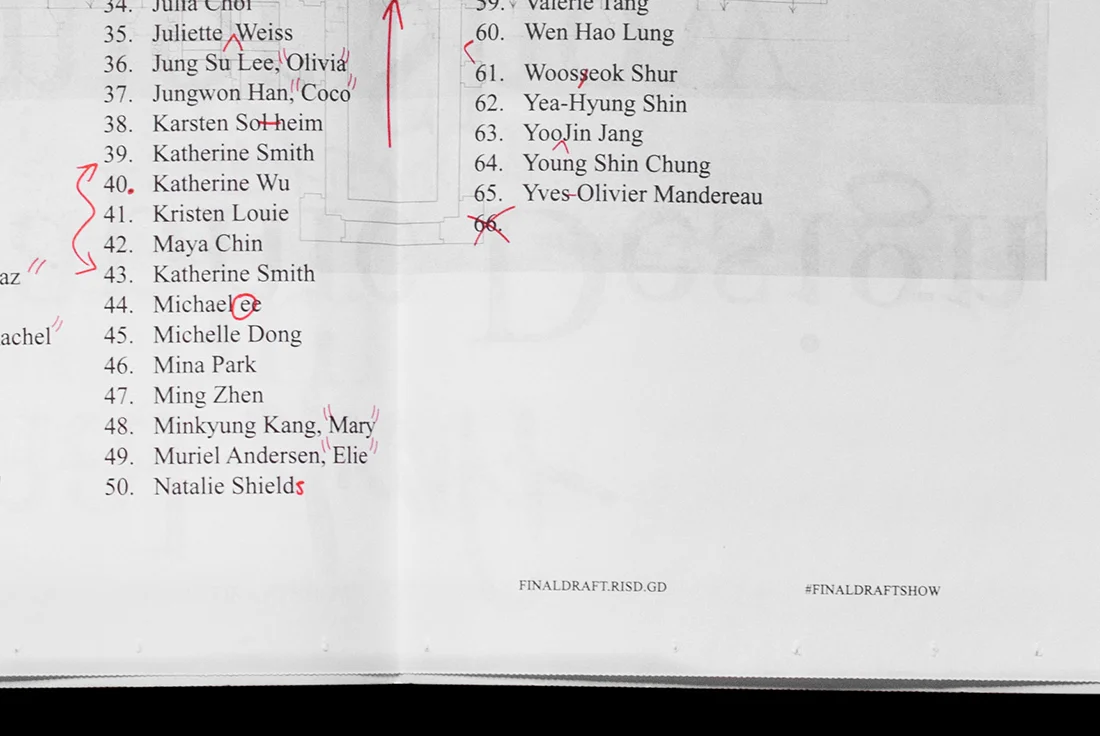 az"
achel"
34. Julia Choi
35. Juliette Weiss
36. Jung Su Lee, "Olivia"
37. Jungwon Han, "Coco"
38. Karsten Sol heim
39. Katherine Smith
40. Katherine Wu
41. Kristen Louie
42. Maya Chin
43. Katherine Smith
44. Michael ee
45. Michelle Dong
46. Mina Park
47. Ming Zhen
48. Minkyung Kang, "Mary"
49. Muriel Andersen, "Elie"
50. Natalie Shields
59. Valerie Tang
60. Wen Hao Lung
61. Woosseok Shur
62. Yea-Hyung Shin
63. YooJin Jang
64. Young Shin Chung
65. Yves-Olivier Mandereau
66.
FINALDRAFT.RISD.GD
#FINALDRAFTSHOW